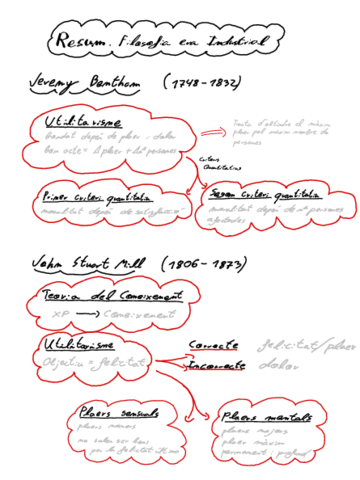 Resum. Filosofia era Industrial
Jeremy Bentham (1748-1832)
Utilitarisme
bondat depèn de plaer i dolor
Tracta d'obtindre el màxim
plaer pel màxim nombre de
persones
criteris
Quantitatius
Primer criteri quantitatiu
moralitat depèn de satisfacció
Segon criteri quantitatiu
moralitat depèn de nº persones
afectades
John Stuart Mill (1806-1873)
Teoria del Coneixement
XP → Coneixement
Utilitarisme
Objectiu = felicitat
Correcte felicitat/plaer
Incorrecte dolor
Plaers sensuals
plaers menors
no solen ser bons
per la felicitat última
Plaers mentals
plaers majors
plaer màxim
permanent i profund